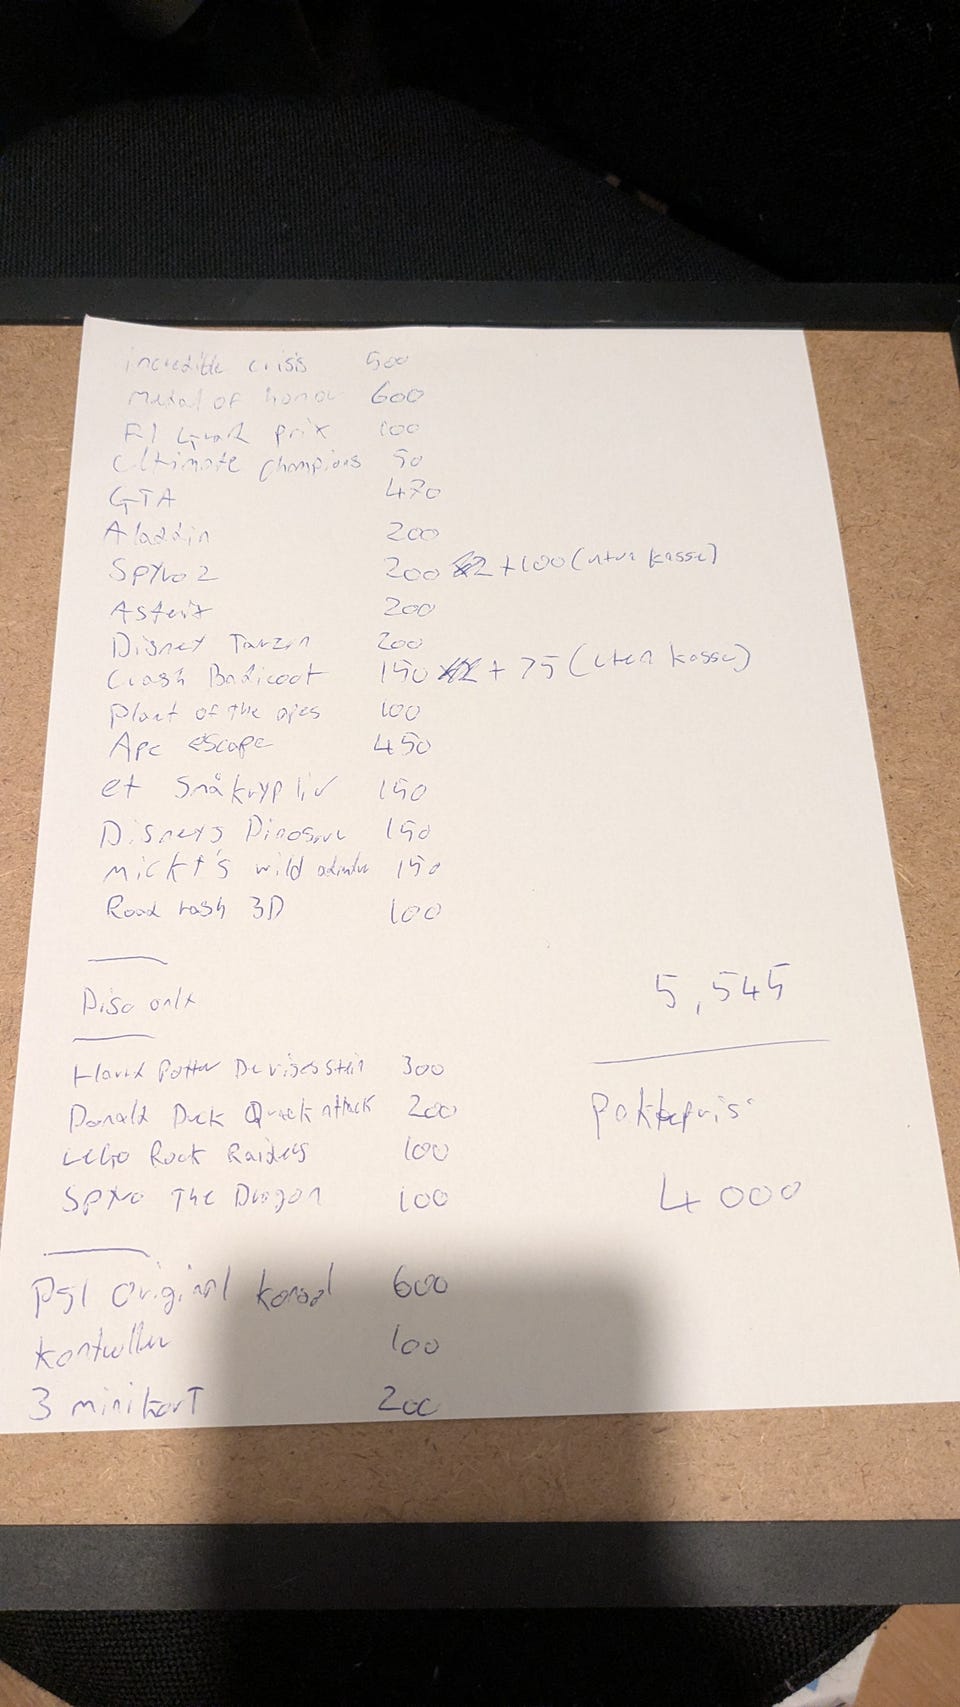 incredible crisis 500
Medal of honor 600
F1 Grand prix 100
Ultimate Champions 50
GTA 470
Aladdin 200
Spyro 2 200 +100 (uten kasse)
Asterix 200
Disney Tarzan 200
Crash Badicoot 150 + 75 (uten kasse)
Planet of the apes 100
Ape escape 450
et småkryp liv 150
Disneys Dinosaur 150
Mickey's wild 150
Road rash 3D 100
Disc only
Harry Potter De vises stein 300
Donald Duck Quack attack 200
LEGO Rock Raiders 100
Spyro The Dragon 100
5,545
Pakkepris
4000
PS1 original konsol 600
kontroller 100
3 minikort 200